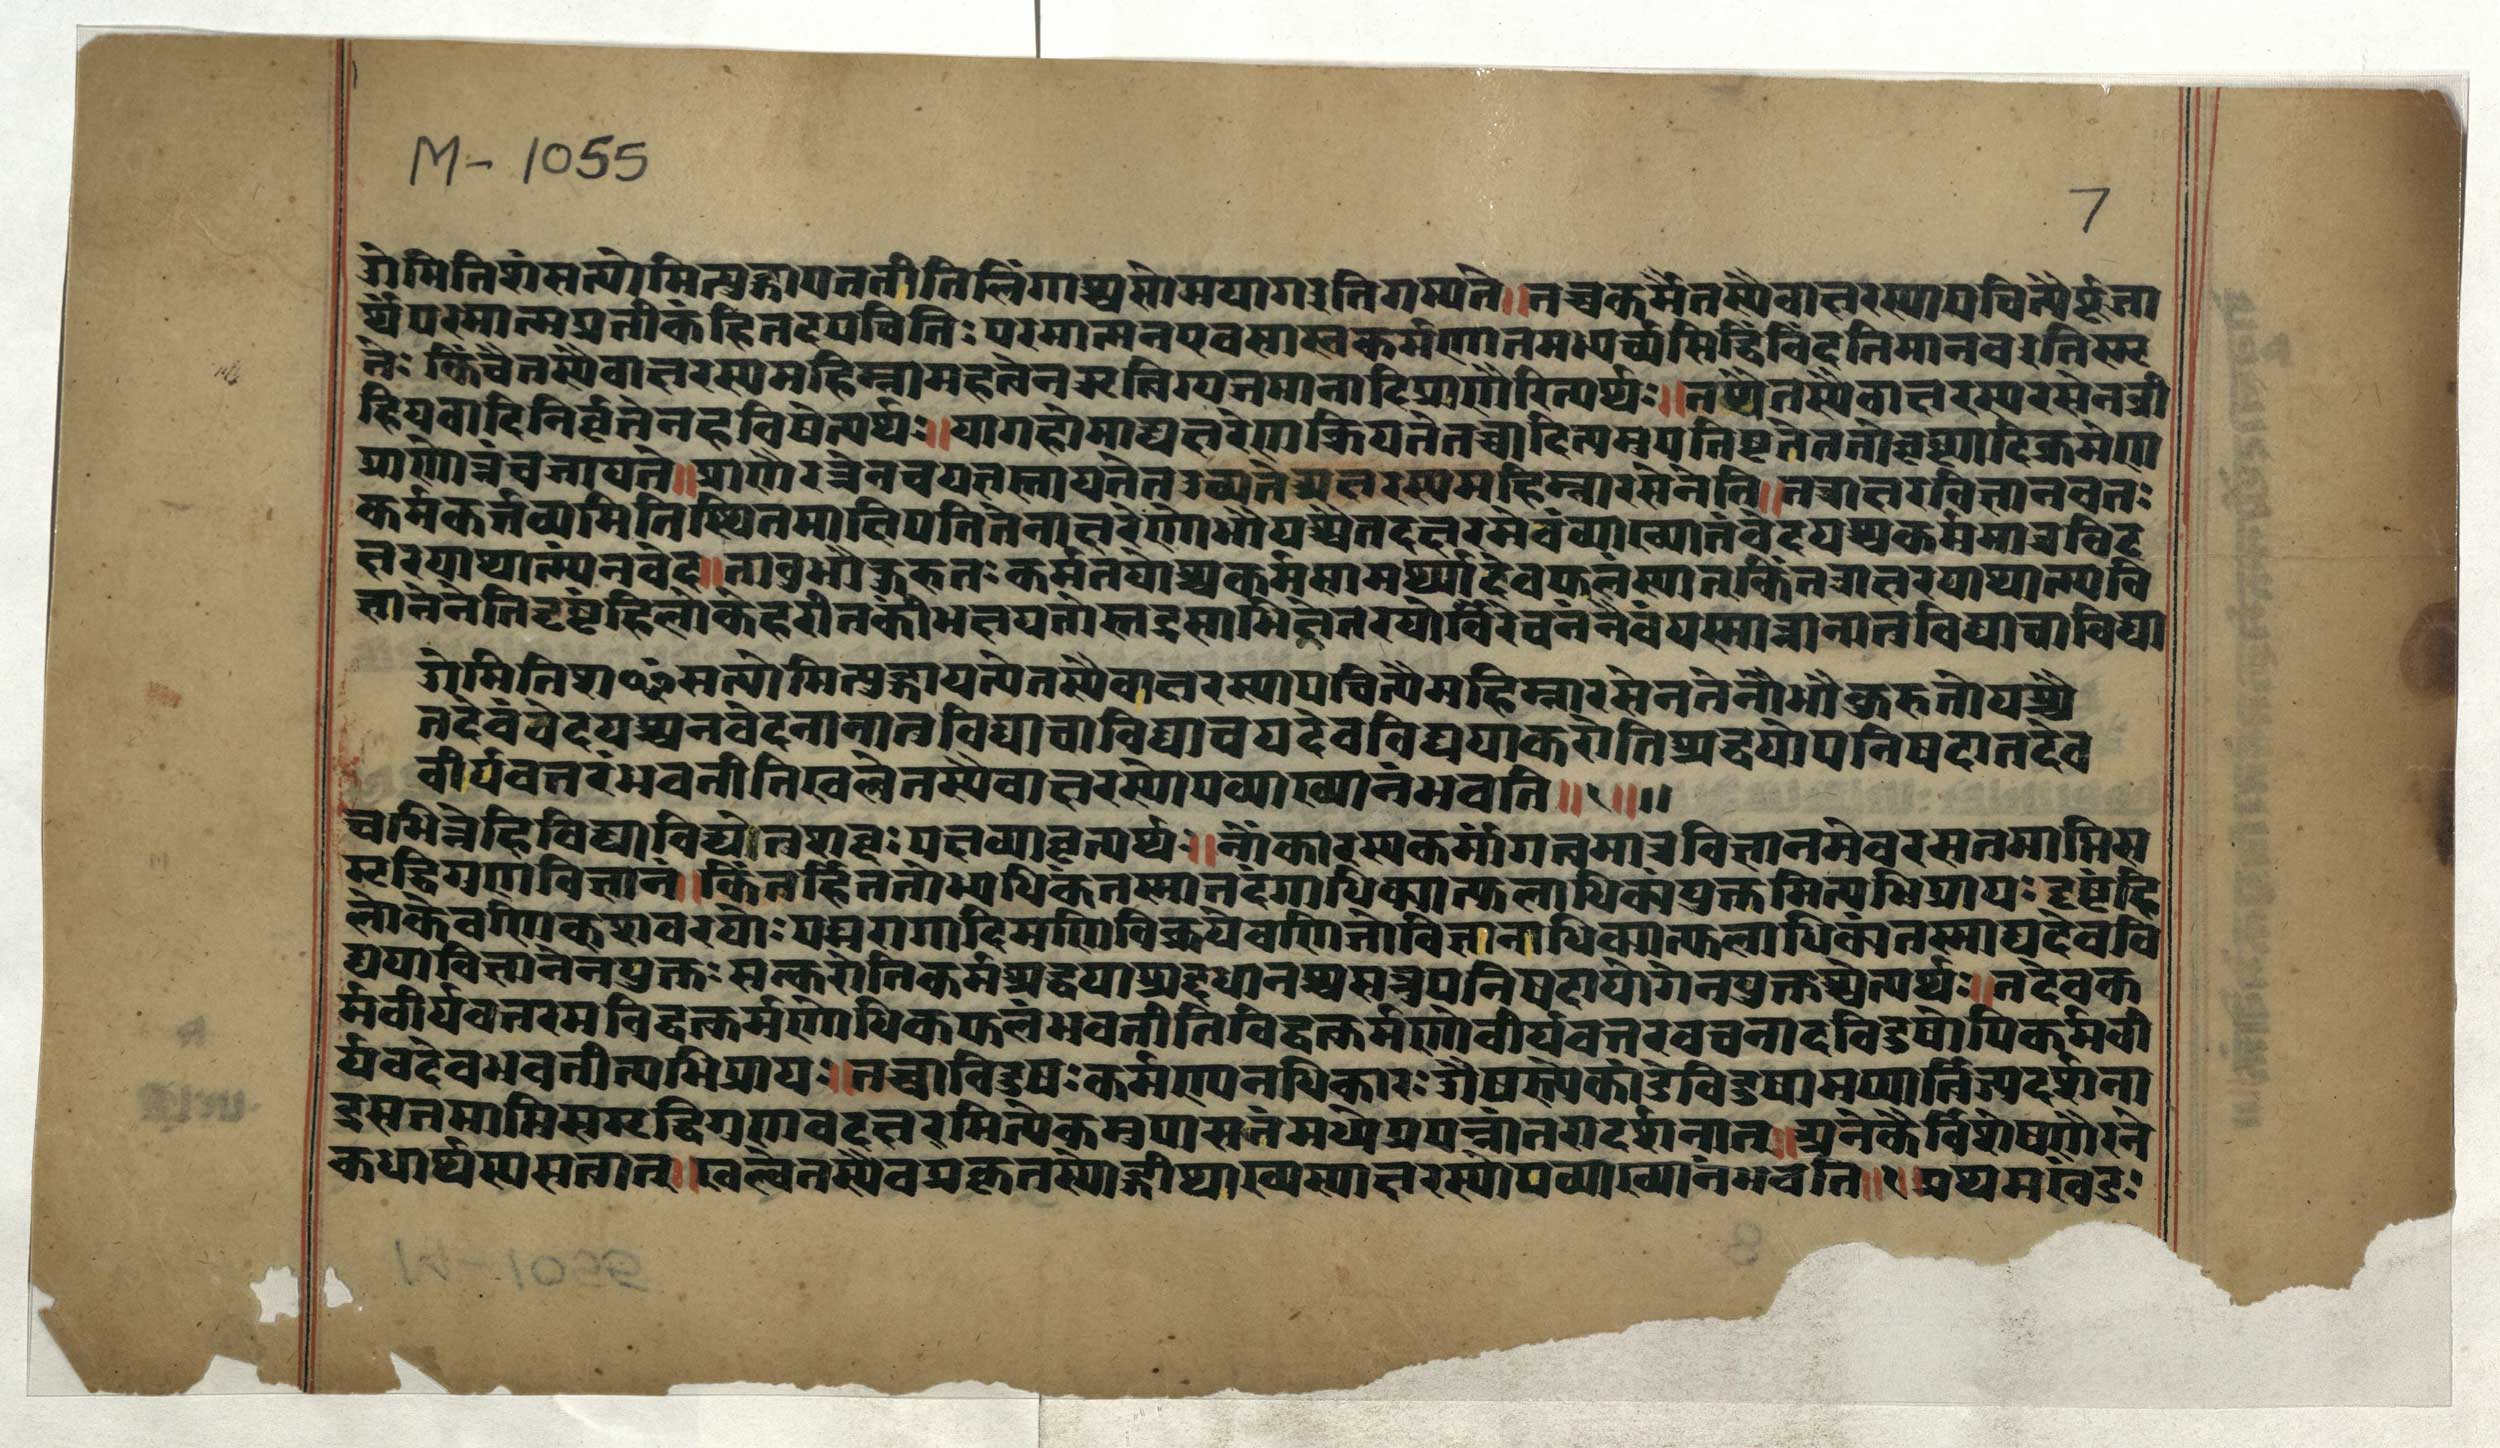 M- 1055
7
ओमितिशंसत्योमित्युद्गायततीतिलिंगाच्चसोमयागइतिगम्यते॥तच्चकर्मैतस्यैवाक्षरस्यापचित्यैपूजा
र्थंपरमात्मप्रतीकंहितदपचितिः परमात्मनएवसास्वकर्मणातमभ्यर्च्यसिद्धिंविंदतिमानवइतिस्मृ
तेः किंचैतस्यैवाक्षरस्यमहिम्नामहत्वेनऋत्विग्यजमानादिप्राणैरित्यर्थः॥तथैतस्यैवाक्षरस्यरसेनव्री
हियवादिनिर्वृत्तेनहविषेत्यर्थः॥यागहोमाद्यक्षरेणक्रियतेतच्चादित्यमुपतिष्टतेततोवृष्ट्यादिक्रमेण
प्राणोन्नंचजायते॥प्राणैरन्नेनचयज्ञस्तायतेतइव्यतेअक्षरस्यमहिम्नारसेनेति॥तत्राक्षरविज्ञानवतः
कर्मकर्त्तव्यमितिस्थितमाक्षिपतितेनाक्षरेणोभौयश्चैतदक्षरमेवंव्याख्यातंवेदयश्चकर्ममात्रविद
क्षरयाथात्म्यंनवेद॥तावुभौकुरुतः कर्मतयोश्चकर्मसामर्थ्यादेवफलंस्यात्किंतत्राक्षरयाथात्म्यवि
ज्ञानेनेतिदृष्टंहिलोकेहरीतकीभक्षयतोस्तद्रसाभिज्ञेतरयोर्विरेचनंनैवंयस्मान्नानातुविद्याचाविद्या
ओमितिशꣳसत्योमित्युद्गायत्येतस्यैवाक्षरस्यापचित्यैमहिम्नारसेनतेनौभौकुरुतोयश्चै
तदेवंवेदयश्चनवेदनानातुविद्याचाविद्याचयदेवविद्ययाकरोतिश्रद्धयोपनिषदातदेव
वीर्यवत्तरंभवतीतिखल्वेतस्यैवाक्षरस्योपव्याख्यानंभवति॥१॥॥
चभिन्नेहिविद्याविद्येतुशब्दः पक्षव्यावृत्यर्थः॥नोंकारस्यकर्मांगत्वमात्रविज्ञानमेवरसतमाप्तिस
मृद्धिगुणविज्ञानं॥किंतर्हिततोभ्यधिकंतस्मात्तदंगाधिक्यात्फलाधिक्यंयुक्तमित्यभिप्रायः दृष्टंहि
लोकेवणिक्शबरयोः पद्मरागादिमणिविक्रयेवणिजोविज्ञानाधिक्यात्फलाधिक्यंतस्माद्यदेववि
द्ययाविज्ञानेनयुक्तः सन्करोतिकर्मश्रद्धयाश्रद्दधानश्चसन्नुपनिषदायोगेनयुक्तश्चेत्यर्थः॥तदेवक
र्मवीर्यवत्तरमविद्वत्कर्मणोधिकफलंभवतीतिविद्वत्कर्मणोवीर्यवत्तरवचनादविदुषोपिकर्मवी
र्यवदेवभवतीत्यभिप्रायः॥तच्चाविदुषः कर्मण्यनधिकारः औषस्त्येकांडेविदुषामप्यार्त्विज्यदर्शना
द्रसतमाप्तिसमृद्धिगुणवदक्षरमित्येकमुपासनंमध्येप्रयत्नांतरादर्शनात्॥अनेकैर्विशेषणैरने
कधार्थस्यसत्वात्॥खल्वेतस्यैवप्रकृतस्योद्गीथाख्यस्याक्षरस्योपव्याख्यानंभवति॥१॥प्रथमखंडः